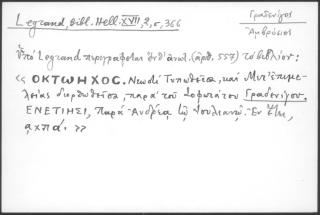 Legrand, Bibl. Hell. XVII, 2, σ, 366
Γραδενίγος
Ἀμβρόσιος
Ὑπό Legrand περιγράφεται ἐν θ' ἀναλ. (ἀριθ, 557) τό βιβλίον:
« ΟΚΤΩΗΧΟC. Νεωστί Τυπωθεῖσα, καί Μετ' ἐπιμε-
λείας διορθωθεῖσα, παρά τοῦ Σοφωτάτου Γραδενίγου.
ΕΝΕΤΙΗΣΙ, Παρά Ἀνδρέα τῷ Ἰουλιανῷ. Ἐν ἔτει,
αχπά. »